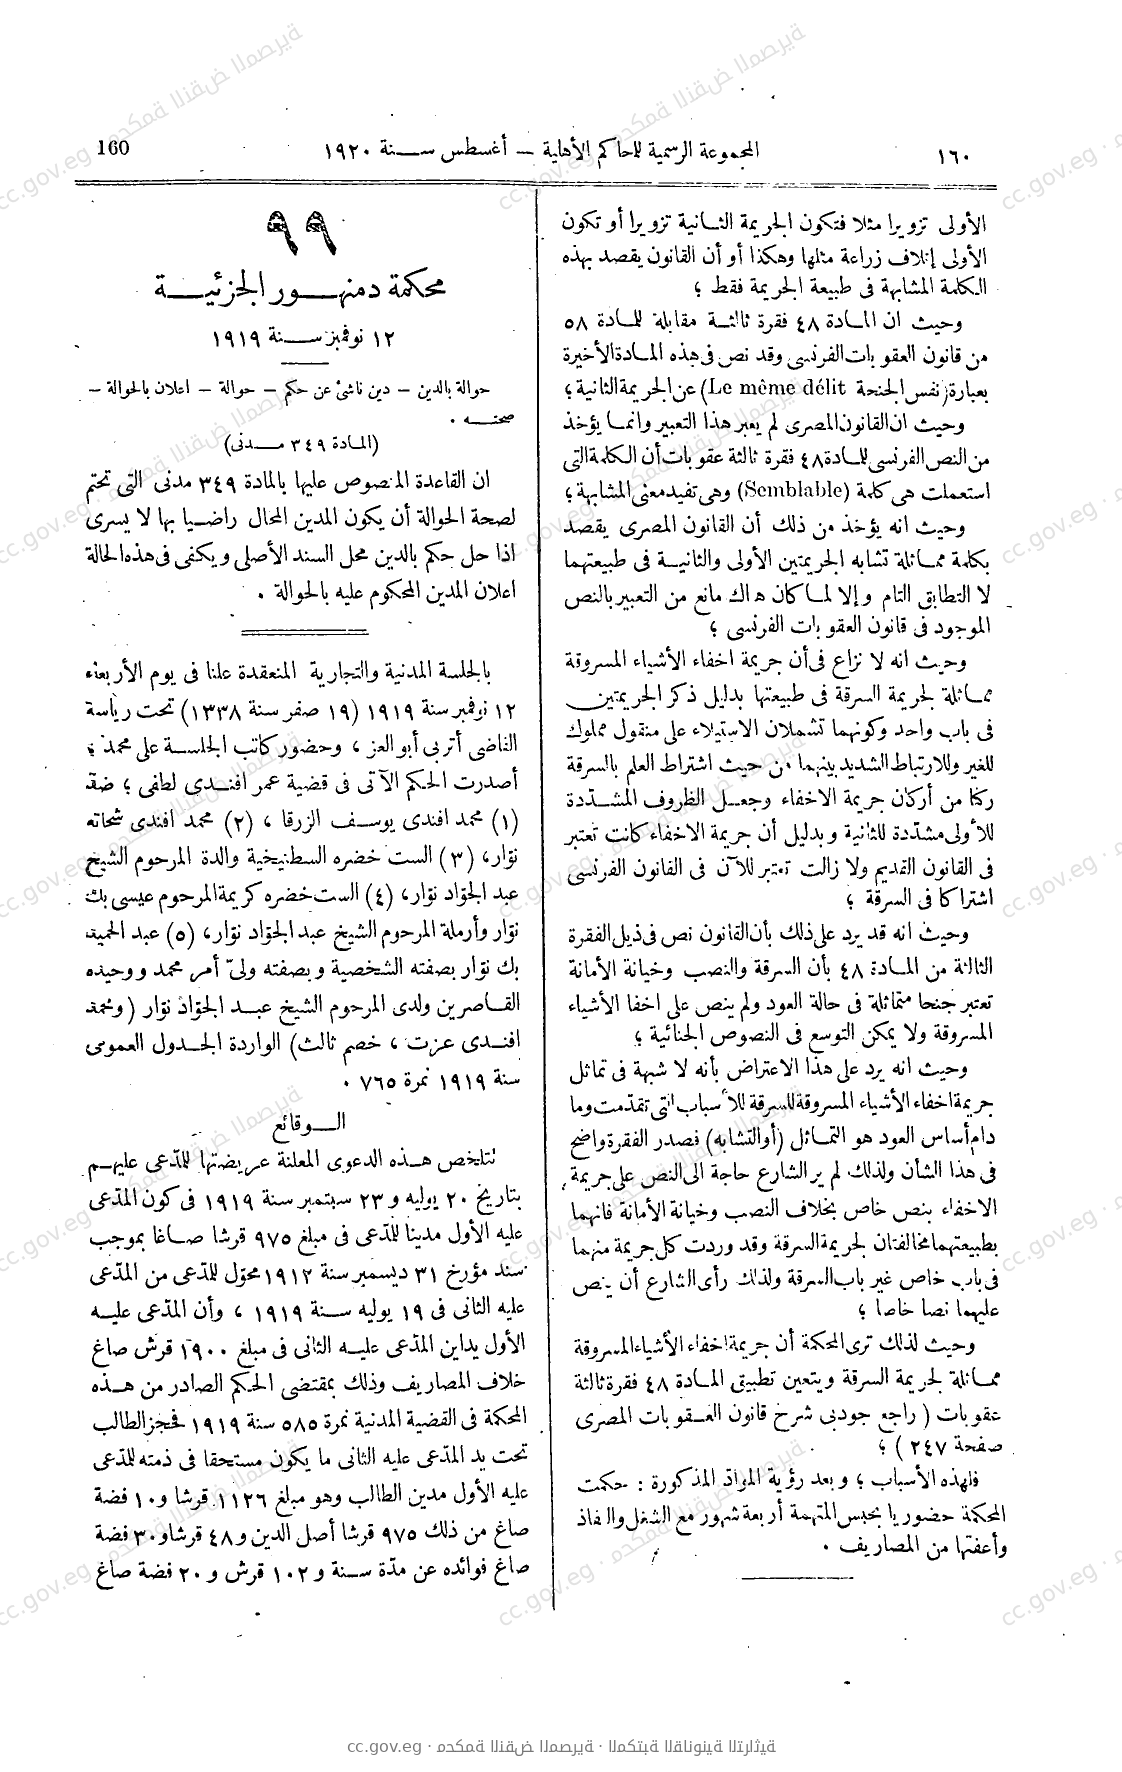 ١٦٠
المجموعة الرسمية للمحاكم الأهلية – أغسطس سنة ١٩٢٠
160
الأولى تزويرا مثلا فتكون الجريمة الثانية تزويرا أو تكون
الأولى إتلاف زراعة مثلها وهكذا أو أن القانون يقصد بهذه
الكلمة المشابهة فى طبيعة الجريمة فقط ؛
وحيث ان المادة ٤٨ فقرة ثالثة مقابلة للمادة ٥٨
من قانون العقوبات الفرنسى وقد نص فى هذه المادة الأخيرة
بعبارة (نفس الجنحة Le même délit) عن الجريمة الثانية ؛
وحيث ان القانون المصرى لم يعبر هذا التعبير وانما يؤخذ
من النص الفرنسى للمادة ٤٨ فقرة ثالثة عقوبات أن الكلمة التى
استعملت هى كلمة (Semblable) وهى تفيد معنى المشابهة ؛
وحيث انه يؤخذ من ذلك أن القانون المصرى يقصد
بكلمة مماثلة تشابه الجريمتين الأولى والثانية فى طبيعتهما
لا التطابق التام وإلا لما كان هناك مانع من التعبير بالنص
الموجود فى قانون العقوبات الفرنسى ؛
وحيث انه لا نزاع فى أن جريمة اخفاء الأشياء المسروقة
مماثلة لجريمة السرقة فى طبيعتها بدليل ذكر الجريمتين
فى باب واحد وكونهما تشملان الاستيلاء على منقول مملوك
للغير وللارتباط الشديد بينهما من حيث اشتراط العلم بالسرقة
ركنا من أركان جريمة الاخفاء وجعل الظروف المشدّدة
للأولى مشدّدة للثانية وبدليل أن جريمة الاخفاء كانت تعتبر
فى القانون القديم ولا زالت تعتبر للآن فى القانون الفرنسى
اشتراكا فى السرقة ؛
وحيث انه قد يرد على ذلك بأن القانون نص فى ذيل الفقرة
الثالثة من المادة ٤٨ بأن السرقة والنصب وخيانة الأمانة
تعتبر جنحا متماثلة فى حالة العود ولم ينص على اخفا الأشياء
المسروقة ولا يمكن التوسع فى النصوص الجنائية ؛
وحيث انه يرد على هذا الاعتراض بأنه لا شبهة فى تماثل
جريمة اخفاء الأشياء المسروقة للسرقة للأسباب التى تقدّمت وما
دام أساس العود هو التماثل (أو التشابه) فصدر الفقرة واضح
فى هذا الشأن ولذلك لم ير الشارع حاجة الى النص على جريمة
الاخفاء بنص خاص بخلاف النصب وخيانة الأمانة فانهما
بطبيعتهما مخالفتان لجريمة السرقة وقد وردت كل جريمة منهما
فى باب خاص غير باب السرقة ولذلك رأى الشارع أن ينص
عليهما نصا خاصا ؛
وحيث لذلك ترى المحكمة أن جريمة اخفاء الأشياء المسروقة
مماثلة لجريمة السرقة ويتعين تطبيق المادة ٤٨ فقرة ثالثة
عقوبات ( راجع جودبى شرح قانون العقوبات المصرى
صفحة ٢٤٧ ) ؛
فلهذه الأسباب ؛ وبعد رؤية الموادّ المذكورة : حكمت
المحكمة حضوريا بحبس المتهمة أربعة شهور مع الشغل والنفاذ
وأعفتها من المصاريف .
٩٩
محكمة دمنهور الجزئية
١٢ نوفمبر سنة ١٩١٩
حوالة بالدين – دين ناشئ عن حكم – حوالة – اعلان بالحوالة –
صحته .
(المادة ٣٤٩ مدنى)
ان القاعدة المنصوص عليها بالمادة ٣٤٩ مدنى التى تحتم
لصحة الحوالة أن يكون المدين المحال راضيا بها لا يسرى
اذا حل حكم بالدين محل السند الأصلى ويكفى فى هذه الحالة
اعلان المدين المحكوم عليه بالحوالة .
بالجلسة المدنية والتجارية المنعقدة علنا فى يوم الأربعاء
١٢ نوفمبر سنة ١٩١٩ (١٩ صفر سنة ١٣٣٨) تحت رياسة
القاضى أتربى أبو العز ، وحضور كاتب الجلسة على محمد ؛
أصدرت الحكم الآتى فى قضية عمر افندى لطفى ؛ ضدّ
(١) محمد افندى يوسف الزرقا ، (٢) محمد افندى شحاته
نوّار، (٣) الست خضره السطنيخية والدة المرحوم الشيخ
عبد الجوّاد نوّار، (٤) الست خضره كريمة المرحوم عيسى بك
نوّار وأرملة المرحوم الشيخ عبد الجوّاد نوّار، (٥) عبد الحميد
بك نوّار بصفته الشخصية وبصفته ولىّ أمر محمد ووحيده
القاصرين ولدى المرحوم الشيخ عبد الجوّاد نوّار (ومحمد
افندى عزت ، خصم ثالث) الواردة الجدول العمومى
سنة ١٩١٩ نمرة ٧٦٥ .
الوقائع
تتلخص هذه الدعوى المعلنة عريضتها للمدّعى عليهم
بتاريخ ٢٠ يوليه و ٢٣ سبتمبر سنة ١٩١٩ فى كون المدّعى
عليه الأول مدينا للمدّعى فى مبلغ ٩٧٥ قرشا صاغا بموجب
سند مؤرخ ٣١ ديسمبر سنة ١٩١٢ محوّل للمدّعى من المدّعى
عليه الثانى فى ١٩ يوليه سنة ١٩١٩ ، وأن المدّعى عليه
الأول يداين المدّعى عليه الثانى فى مبلغ ١٩٠٠ قرش صاغ
خلاف المصاريف وذلك بمقتضى الحكم الصادر من هذه
المحكمة فى القضية المدنية نمرة ٥٨٥ سنة ١٩١٩ فحجز الطالب
تحت يد المدّعى عليه الثانى ما يكون مستحقا فى ذمته للمدّعى
عليه الأول مدين الطالب وهو مبلغ ١١٢٦ قرشا و ١٠ فضة
صاغ من ذلك ٩٧٥ قرشا أصل الدين و ٤٨ قرشا و ٣٠ فضة
صاغ فوائده عن مدّة سنة و ١٠٢ قرش و ٢٠ فضة صاغ
cc.gov.eg · محكمة النقض المصرية · المكتبة القانونية التراثية